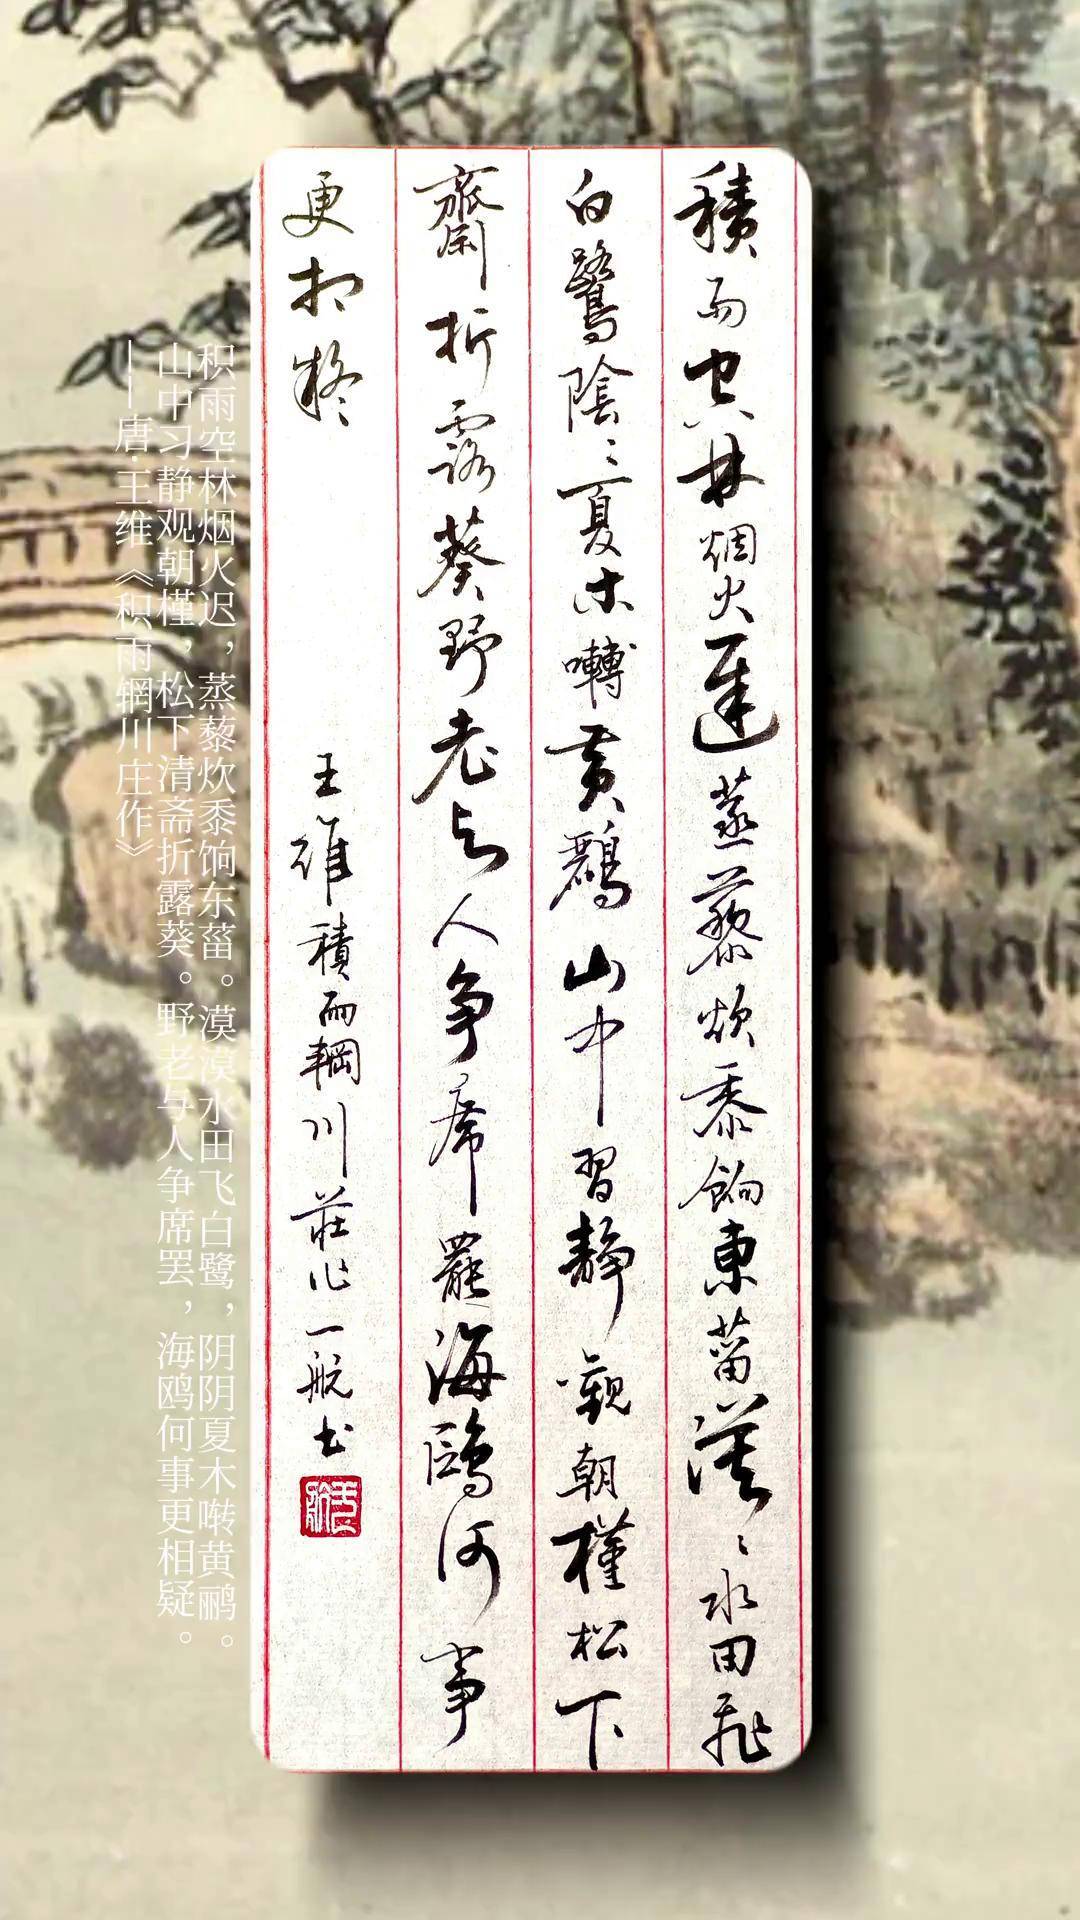 積雨空林烟火遲蒸藜炊黍餉東菑漠〻水田飛
白鷺陰〻夏木囀黄鸝山中習靜觀朝槿松下
齋折露葵野老与人争席罷海鷗何事
更相疑
王維積雨輞川莊作一航书
积雨空林烟火迟，蒸藜炊黍饷东菑。漠漠水田飞白鹭，阴阴夏木啭黄鹂。
山中习静观朝槿，松下清斋折露葵。野老与人争席罢，海鸥何事更相疑。
——唐·王维《积雨辋川庄作》